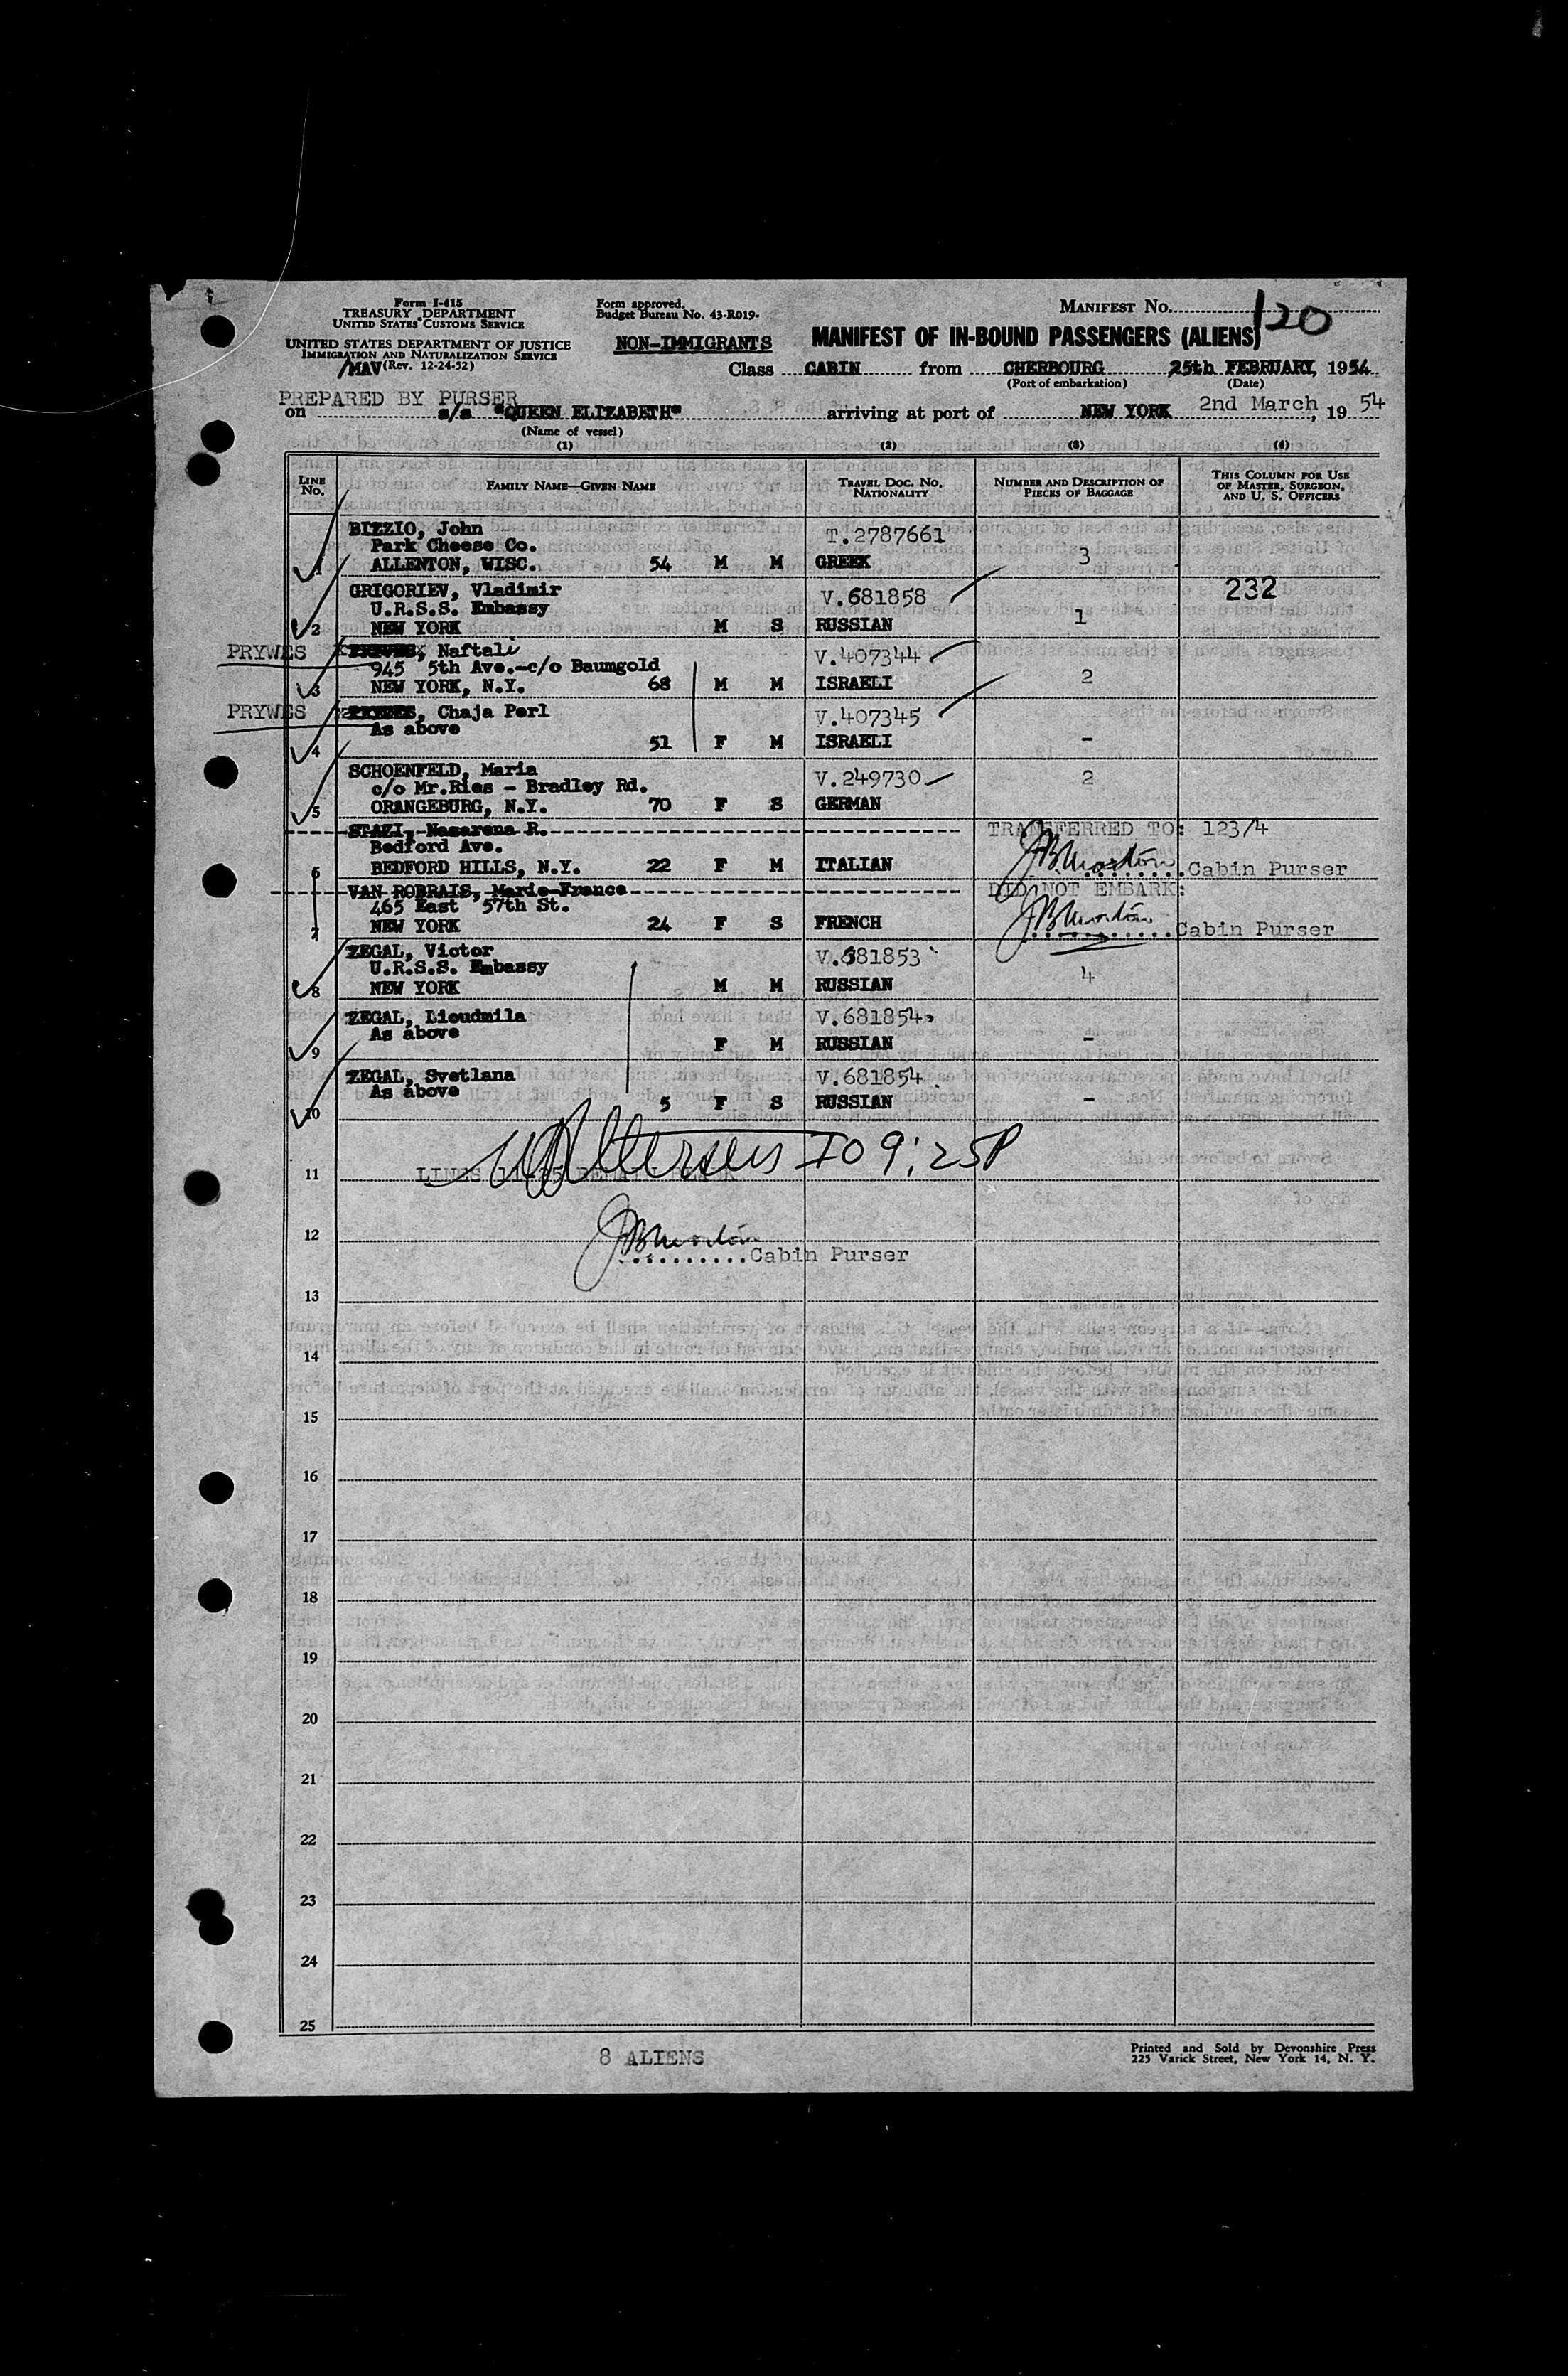 Form I-415
TREASURY DEPARTMENT
UNITED STATES CUSTOMS SERVICE
UNITED STATES DEPARTMENT OF JUSTICE
IMMIGRATION AND NATURALIZATION SERVICE
/MAV (Rev. 12-24-52)
Form approved.
Budget Bureau No. 43-R019-
MANIFEST No. 120
NON-IMMIGRANTS
MANIFEST OF IN-BOUND PASSENGERS (ALIENS)
Class CABIN from CHERBOURG 25th FEBRUARY, 1954
(Port of embarkation) (Date)
PREPARED BY PURSER
on s/s "QUEEN ELIZABETH" arriving at port of NEW YORK 2nd March, 19 54
(Name of vessel)
(1) (2) (3) (4)
LINE No. FAMILY NAME—GIVEN NAME TRAVEL DOC. No. NATIONALITY NUMBER AND DESCRIPTION OF PIECES OF BAGGAGE THIS COLUMN FOR USE OF MASTER, SURGEON, AND U. S. OFFICERS
BIZZIO, John T.2787661
Park Cheese Co.
1 ALLENTON, WISC. 54 M M GREEK 3
GRIGORIEV, Vladimir V.681858 232
U.R.S.S. Embassy
2 NEW YORK M S RUSSIAN 1
PRYWES , Naftali V.407344
945 5th Ave.-c/o Baumgold
3 NEW YORK, N.Y. 68 M M ISRAELI 2
PRYWES , Chaja Perl V.407345
As above
4 51 F M ISRAELI -
SCHOENFELD, Maria V.249730 2
c/o Mr.Ries - Bradley Rd.
5 ORANGEBURG, N.Y. 70 F S GERMAN
STAZI, Nazarena R. TRANSFERRED TO: 123/4
Bedford Ave.
6 BEDFORD HILLS, N.Y. 22 F M ITALIAN JB Morton Cabin Purser
VAN ROBRAIS, Marie-France DID NOT EMBARK:
465 East 57th St.
7 NEW YORK 24 F S FRENCH JB Morton Cabin Purser
ZEGAL, Victor V.681853
U.R.S.S. Embassy
8 NEW YORK M M RUSSIAN 4
ZEGAL, Lioudmila V.681854
As above
9 F M RUSSIAN -
ZEGAL, Svetlana V.681854
As above
10 5 F S RUSSIAN -
IO 9:25P
11 LINES
12
JB Morton Cabin Purser
13
14
15
16
17
18
19
20
21
22
23
24
25
8 ALIENS
Printed and Sold by Devonshire Press
225 Varick Street, New York 14, N. Y.